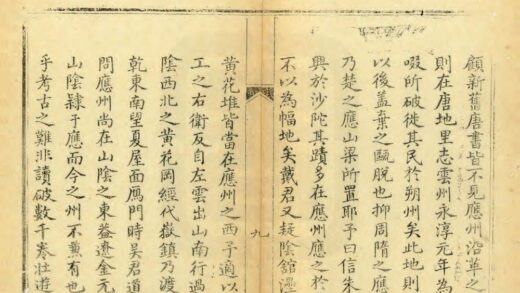 顧新舊唐書皆不見應州沿革之
則在唐地里志雲州永淳元年為
啜所破徙其民於朔州矣此地則
以後蓋棄之甌脫也抑周隋之應
乃楚之應山梁所置耶予曰信朱
興於沙陀其蹟多在應州應之於
不以為幅地矣戴君又疑陰館濕
九
黃花堆皆當在應州之西予適以
工之右衛友自左雲出山南行過
陰西北之黃花岡經代嶽鎮乃渡
乾東南望夏屋面鴈門時吳君道
問應州尚在山陰之東益遼金元
山陰隸于應而今之州不兼有也
乎考古之難非讀破數千卷壯遊